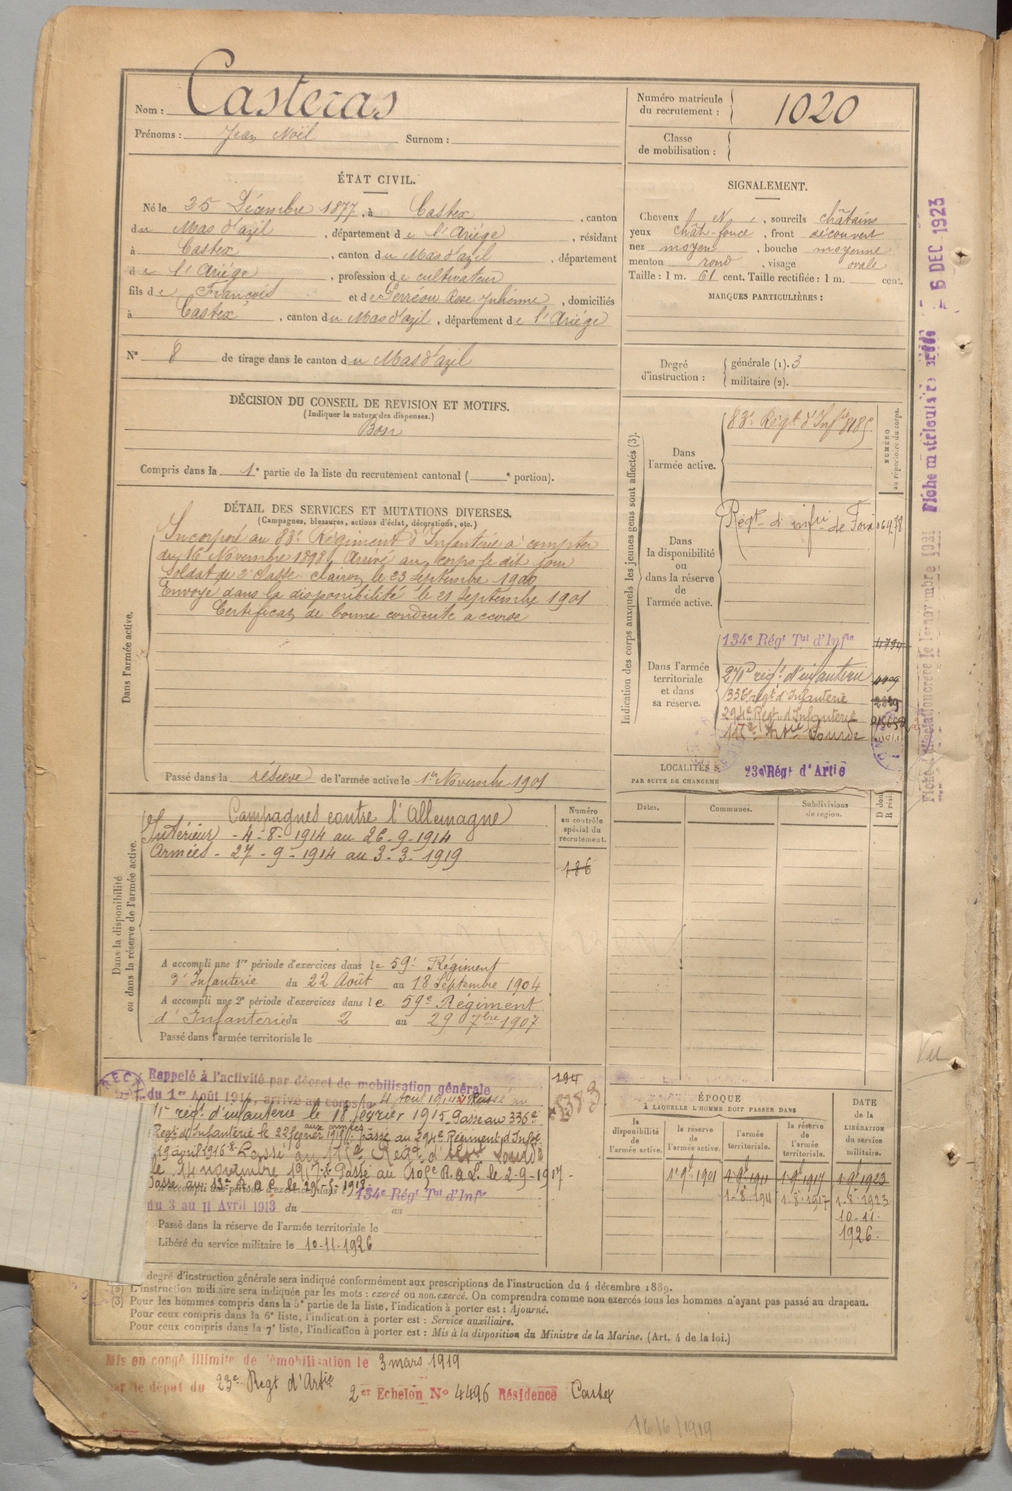 Nom : Casteras
Prénoms : Jean Noël Surnom :
Numéro matricule du recrutement : 1020
Classe de mobilisation :
ÉTAT CIVIL.
Né le 25 Décembre 1877, à Castex, canton
du Mas d'azil, département de l'Ariège, résidant
à Castex, canton du Mas d'azil, département
de l'Ariège, profession de cultivateur
fils de François et de Rose Julienne, domiciliés
à Castex, canton du Mas d'azil, département de l'Ariège
SIGNALEMENT.
Cheveux N, sourcils châtains
yeux chât-foncé, front découvert
nez moyen, bouche moyenne
menton rond, visage ovale
Taille : 1 m. 61 cent. Taille rectifiée : 1 m. cent.
MARQUES PARTICULIÈRES :
N° 8 de tirage dans le canton du Mas d'azil
Degré d'instruction : générale (1). 3
militaire (2).
DÉCISION DU CONSEIL DE REVISION ET MOTIFS.
(Indiquer la nature des dispenses.)
Bon
Compris dans la 1e partie de la liste du recrutement cantonal ( e portion).
DÉTAIL DES SERVICES ET MUTATIONS DIVERSES.
(Campagnes, blessures, actions d'éclat, décorations, etc.)
Dans l'armée active.
Incorporé au 83e Régiment d'Infanterie à compter
du 16 Novembre 1898, Arrivé au corps le dit jour
Soldat de 2e classe Clairon le 23 Septembre 1900
Envoyé dans la disponibilité le 21 Septembre 1901
Certificat de bonne conduite accordé
Passé dans la réserve de l'armée active le 1er Novembre 1901
Indication des corps auxquels les jeunes gens sont affectés (3).
NUMÉRO au répertoire du corps.
Dans l'armée active.
83e Régt d'Infie
Dans la disponibilité ou dans la réserve de l'armée active.
Régt d'infie de Foix
Dans l'armée territoriale et dans sa réserve.
134e Régt Tal d'Infie
271e régt d'infanterie
336e Régt d'Infanterie
294e Régt d'Infanterie
117e Artie Lourde
23e Régt d'Artie
LOCALITÉS
PAR SUITE DE CHANGEME
Dates. Communes. Subdivisions de région.
Dans la disponibilité ou dans la réserve de l'armée active.
Campagnes contre l'Allemagne
Intérieur - 4-8-1914 au 26-9-1914
Armées - 27-9-1914 au 3-3-1919
Numéro au contrôle spécial du recrutement.
186
A accompli une 1re période d'exercices dans le 59e Régiment
d'Infanterie du 22 Août au 18 Septembre 1904
A accompli une 2e période d'exercices dans le 59e Régiment
d'Infanterie du 2 au 29 7bre 1907
Passé dans l'armée territoriale le
Rappelé à l'activité par décret de mobilisation générale
du 1er Août 1914, arrivé au corps le 4 Août 1914. Passé au
régt d'infanterie le 18 février 1915 Passé au 336e
Régt d'Infanterie le 22 février Passé au 294e Régiment d'Infie
19 avril 1916 Passé au 117e Régt d'Artie Lourde
le 14 novembre 1917. Passé au R.A.L. le 2-9-1917-
134e Régt Tal d'Infie
du 3 au 11 Avril 1913 du au
Passé dans la réserve de l'armée territoriale le
Libéré du service militaire le 10-11-1926
194
ÉPOQUE
À LAQUELLE L'HOMME DOIT PASSER DANS
la disponibilité de l'armée active.
la réserve de l'armée active.
l'armée territoriale.
la réserve de l'armée territoriale.
DATE de la LIBÉRATION du service militaire.
1-9-1901 1-9-1911 1-9-1917 1-9-1923
1-8-1911 1-8-1917 1-8-1923
10-11-
1926-
Vu
degré d'instruction générale sera indiqué conformément aux prescriptions de l'instruction du 4 décembre 1889.
(2) L'instruction militaire sera indiquée par les mots : exercé ou non exercé. On comprendra comme non exercés tous les hommes n'ayant pas passé au drapeau.
(3) Pour les hommes compris dans la 5e partie de la liste, l'indication à porter est : Ajourné.
Pour ceux compris dans la 6e liste, l'indication à porter est : Service auxiliaire.
Pour ceux compris dans la 7e liste, l'indication à porter est : Mis à la disposition du Ministre de la Marine. (Art. 4 de la loi.)
Mis en congé illimité de démobilisation le 3 mars 1919
par le dépôt du 23e Régt d'Artie 2er Echelon No 4496 Résidence Castex
16/6/1919
- 6 DEC 1923